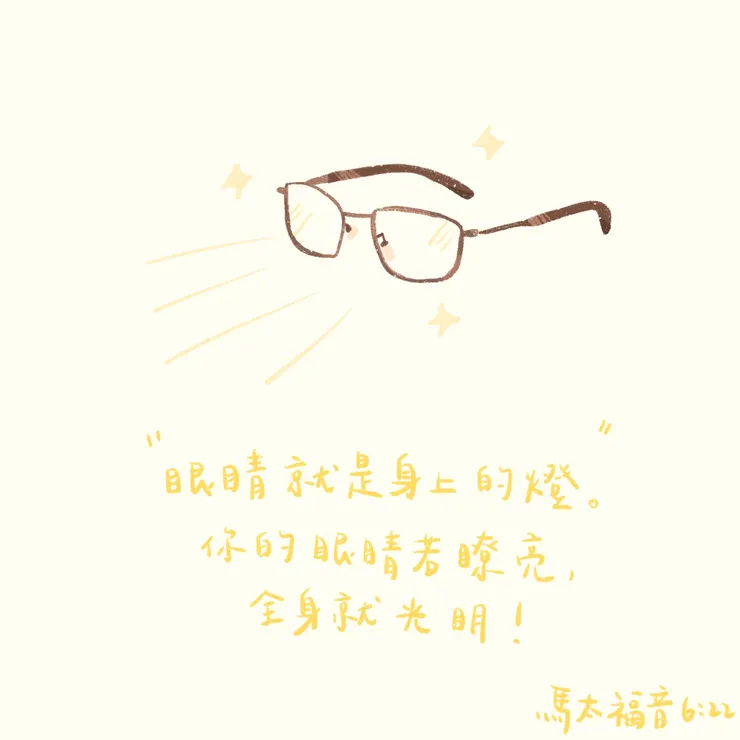 "眼睛就是身上的燈。
你的眼睛若瞭亮,
全身就光明!"
馬太福音6:22